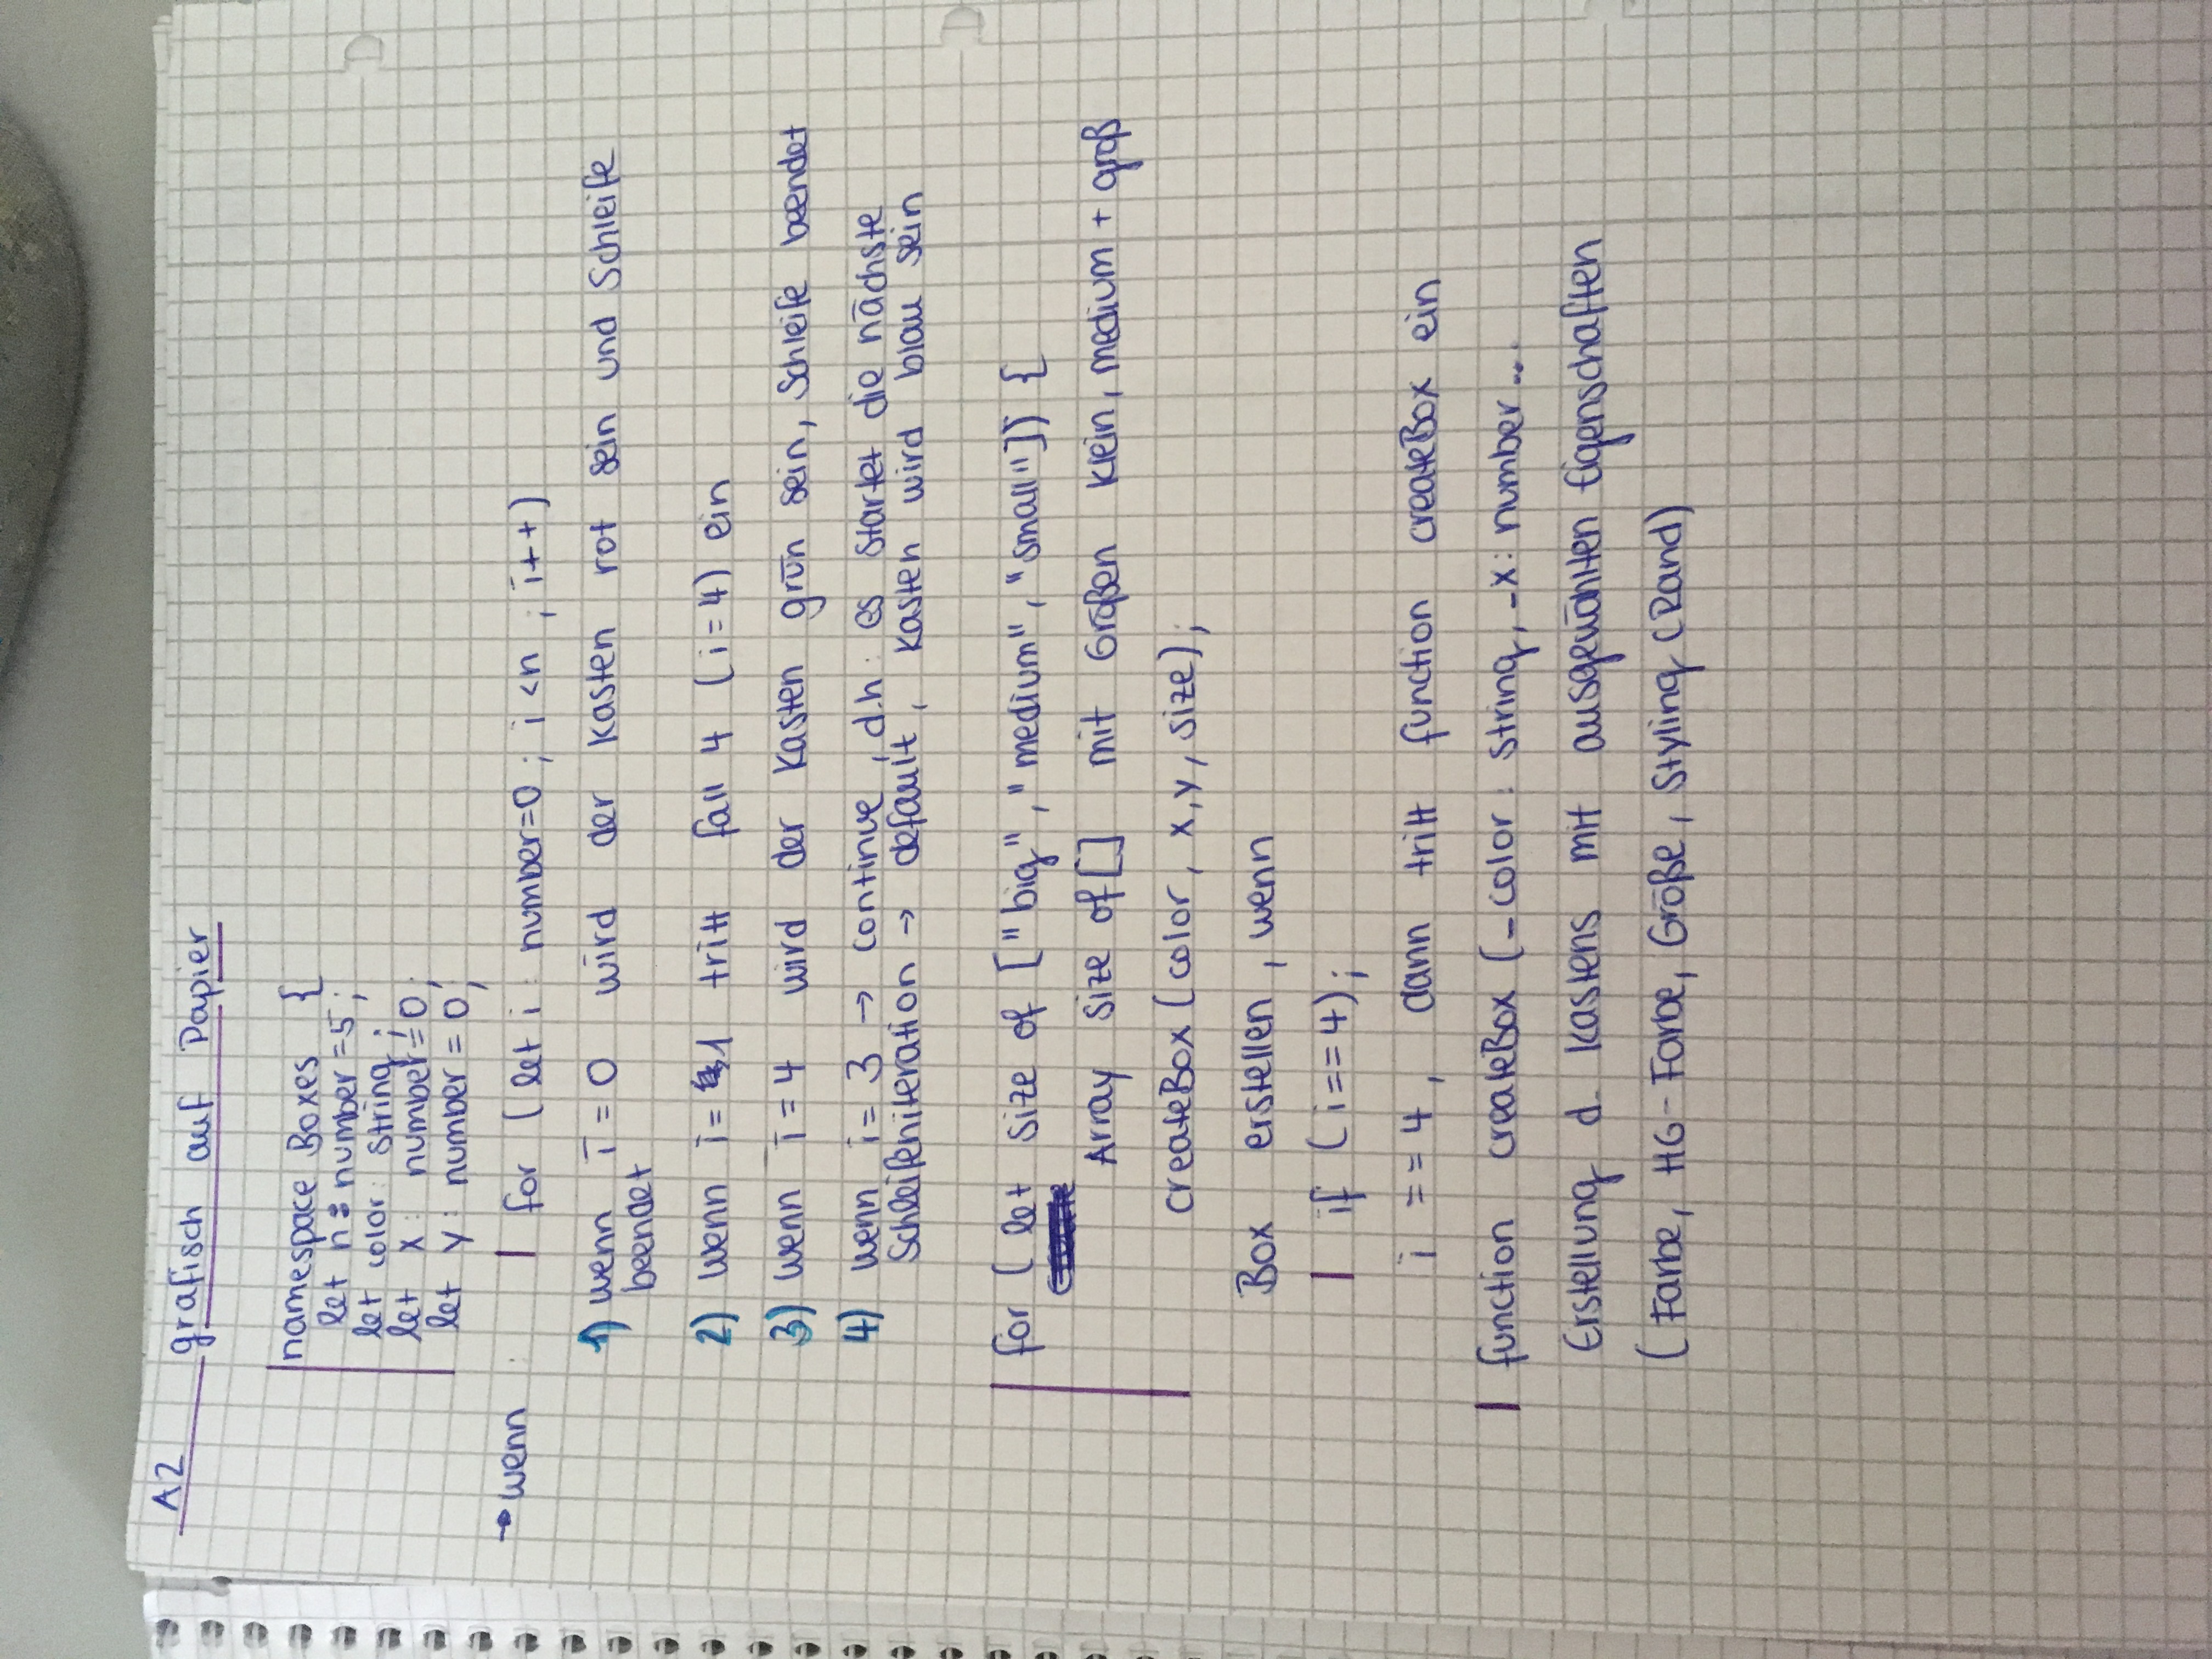 A2 grafisch auf Papier
namespace Boxes {
let n : number = 5;
let color: string;
let x: number = 0;
let y: number = 0;
→ wenn : for (let i: number=0; i<n; i++)
1) wenn i = 0 wird der Kasten rot sein und Schleife
beendet
2) wenn i = 1 tritt fall 4 (i=4) ein
3) wenn i = 4 wird der Kasten grün sein, Schleife beendet
4) wenn i = 3 → continue, d.h. es startet die nächste
Schleifeniteration → default, Kasten wird blau sein
for ( let size of ["big", "medium", "small"]) {
Array size of [] mit Größen klein, medium + groß
createBox (color, x, y, size);
Box erstellen, wenn
if (i==4);
i == 4, dann tritt function createBox ein
function createBox (_color: string, _x: number ...
Erstellung d. Kastens mit ausgewählten Eigenschaften
(Farbe, HG-Farbe, Größe, Styling (Rand)